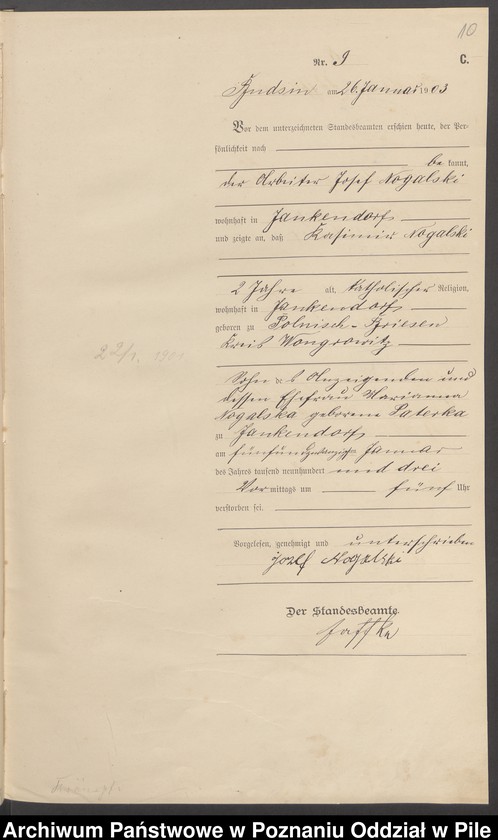 10
Nr. 9 C.
am 26. Januar 1903
Vor dem unterzeichneten Standesbeamten erschien heute, der Per-
sönlichkeit nach
be kannt,
der Arbeiter Josef Nogalski
wohnhaft in Jankendorf
und zeigte an, daß Kasimir Nogalski
2 Jahre alt, katholischer Religion,
wohnhaft in Jankendorf
geboren zu Polnisch-Briesen
Kreis Wongrowitz
Sohn des Anzeigenden und
dessen Ehefrau Marianna
Nogalska geborene Paterka
zu Jankendorf
am fünfundzwanzigsten Januar
des Jahres tausend neunhundert und drei
Vor mittags um fünf Uhr
verstorben sei.
Vorgelesen, genehmigt und unterschrieben
Jozef Nogalski
Der Standesbeamte.
Archiwum Państwowe w Poznaniu Oddział w Pile